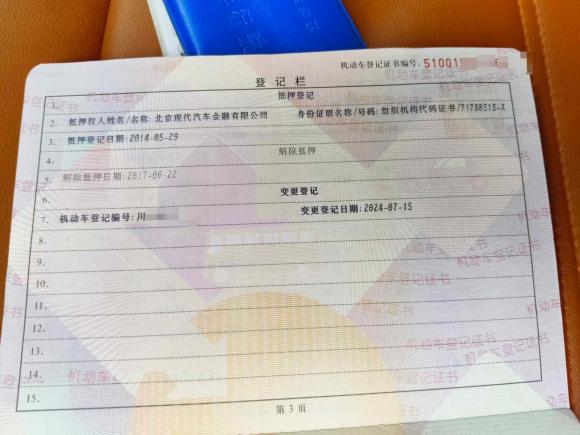 机动车登记证书编号: 51001
登记栏
1. 抵押登记
2. 抵押权人姓名/名称: 北京现代汽车金融有限公司 身份证明名称/号码: 组织机构代码证书/71788515-X
3. 抵押登记日期: 2014-05-29
4. 解除抵押
5. 解除抵押日期: 2017-06-22
6. 变更登记
7. 机动车登记编号: 川 变更登记日期: 2024-07-15
8.
9.
10.
11.
12.
13.
14.
15.
第 3 页